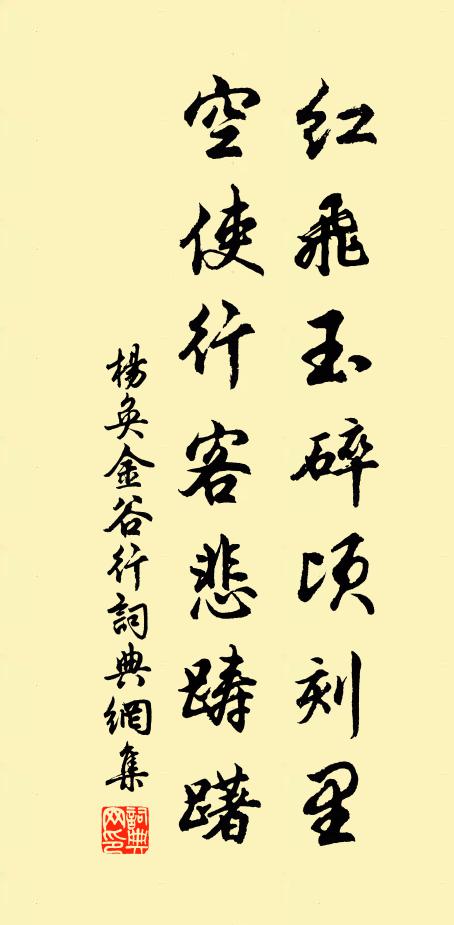 红飛玉碎頃刻里
空使行客悲踌躇
楊奐金谷行詞典網集
詞典网印